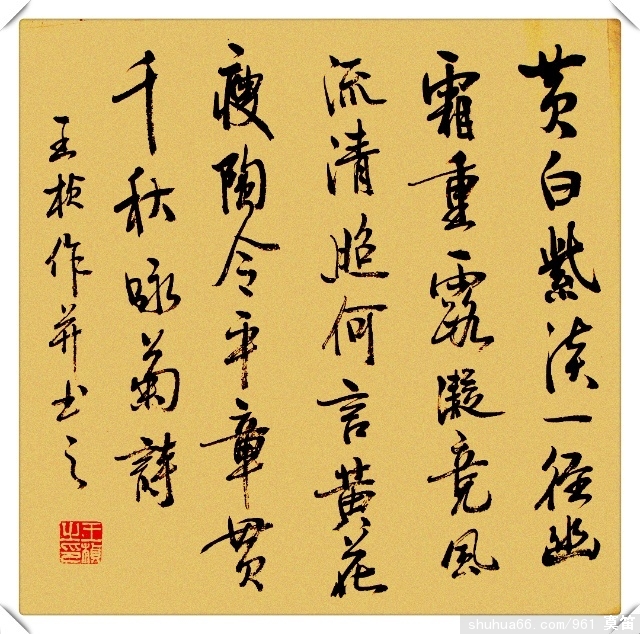 黄白紫淡一径幽
霜重露凝竞风
流清照何言黄花
瘦陶令平章贯
千秋咏菊詩
王桢作并书之
王桢之印
shuhua66.com/961